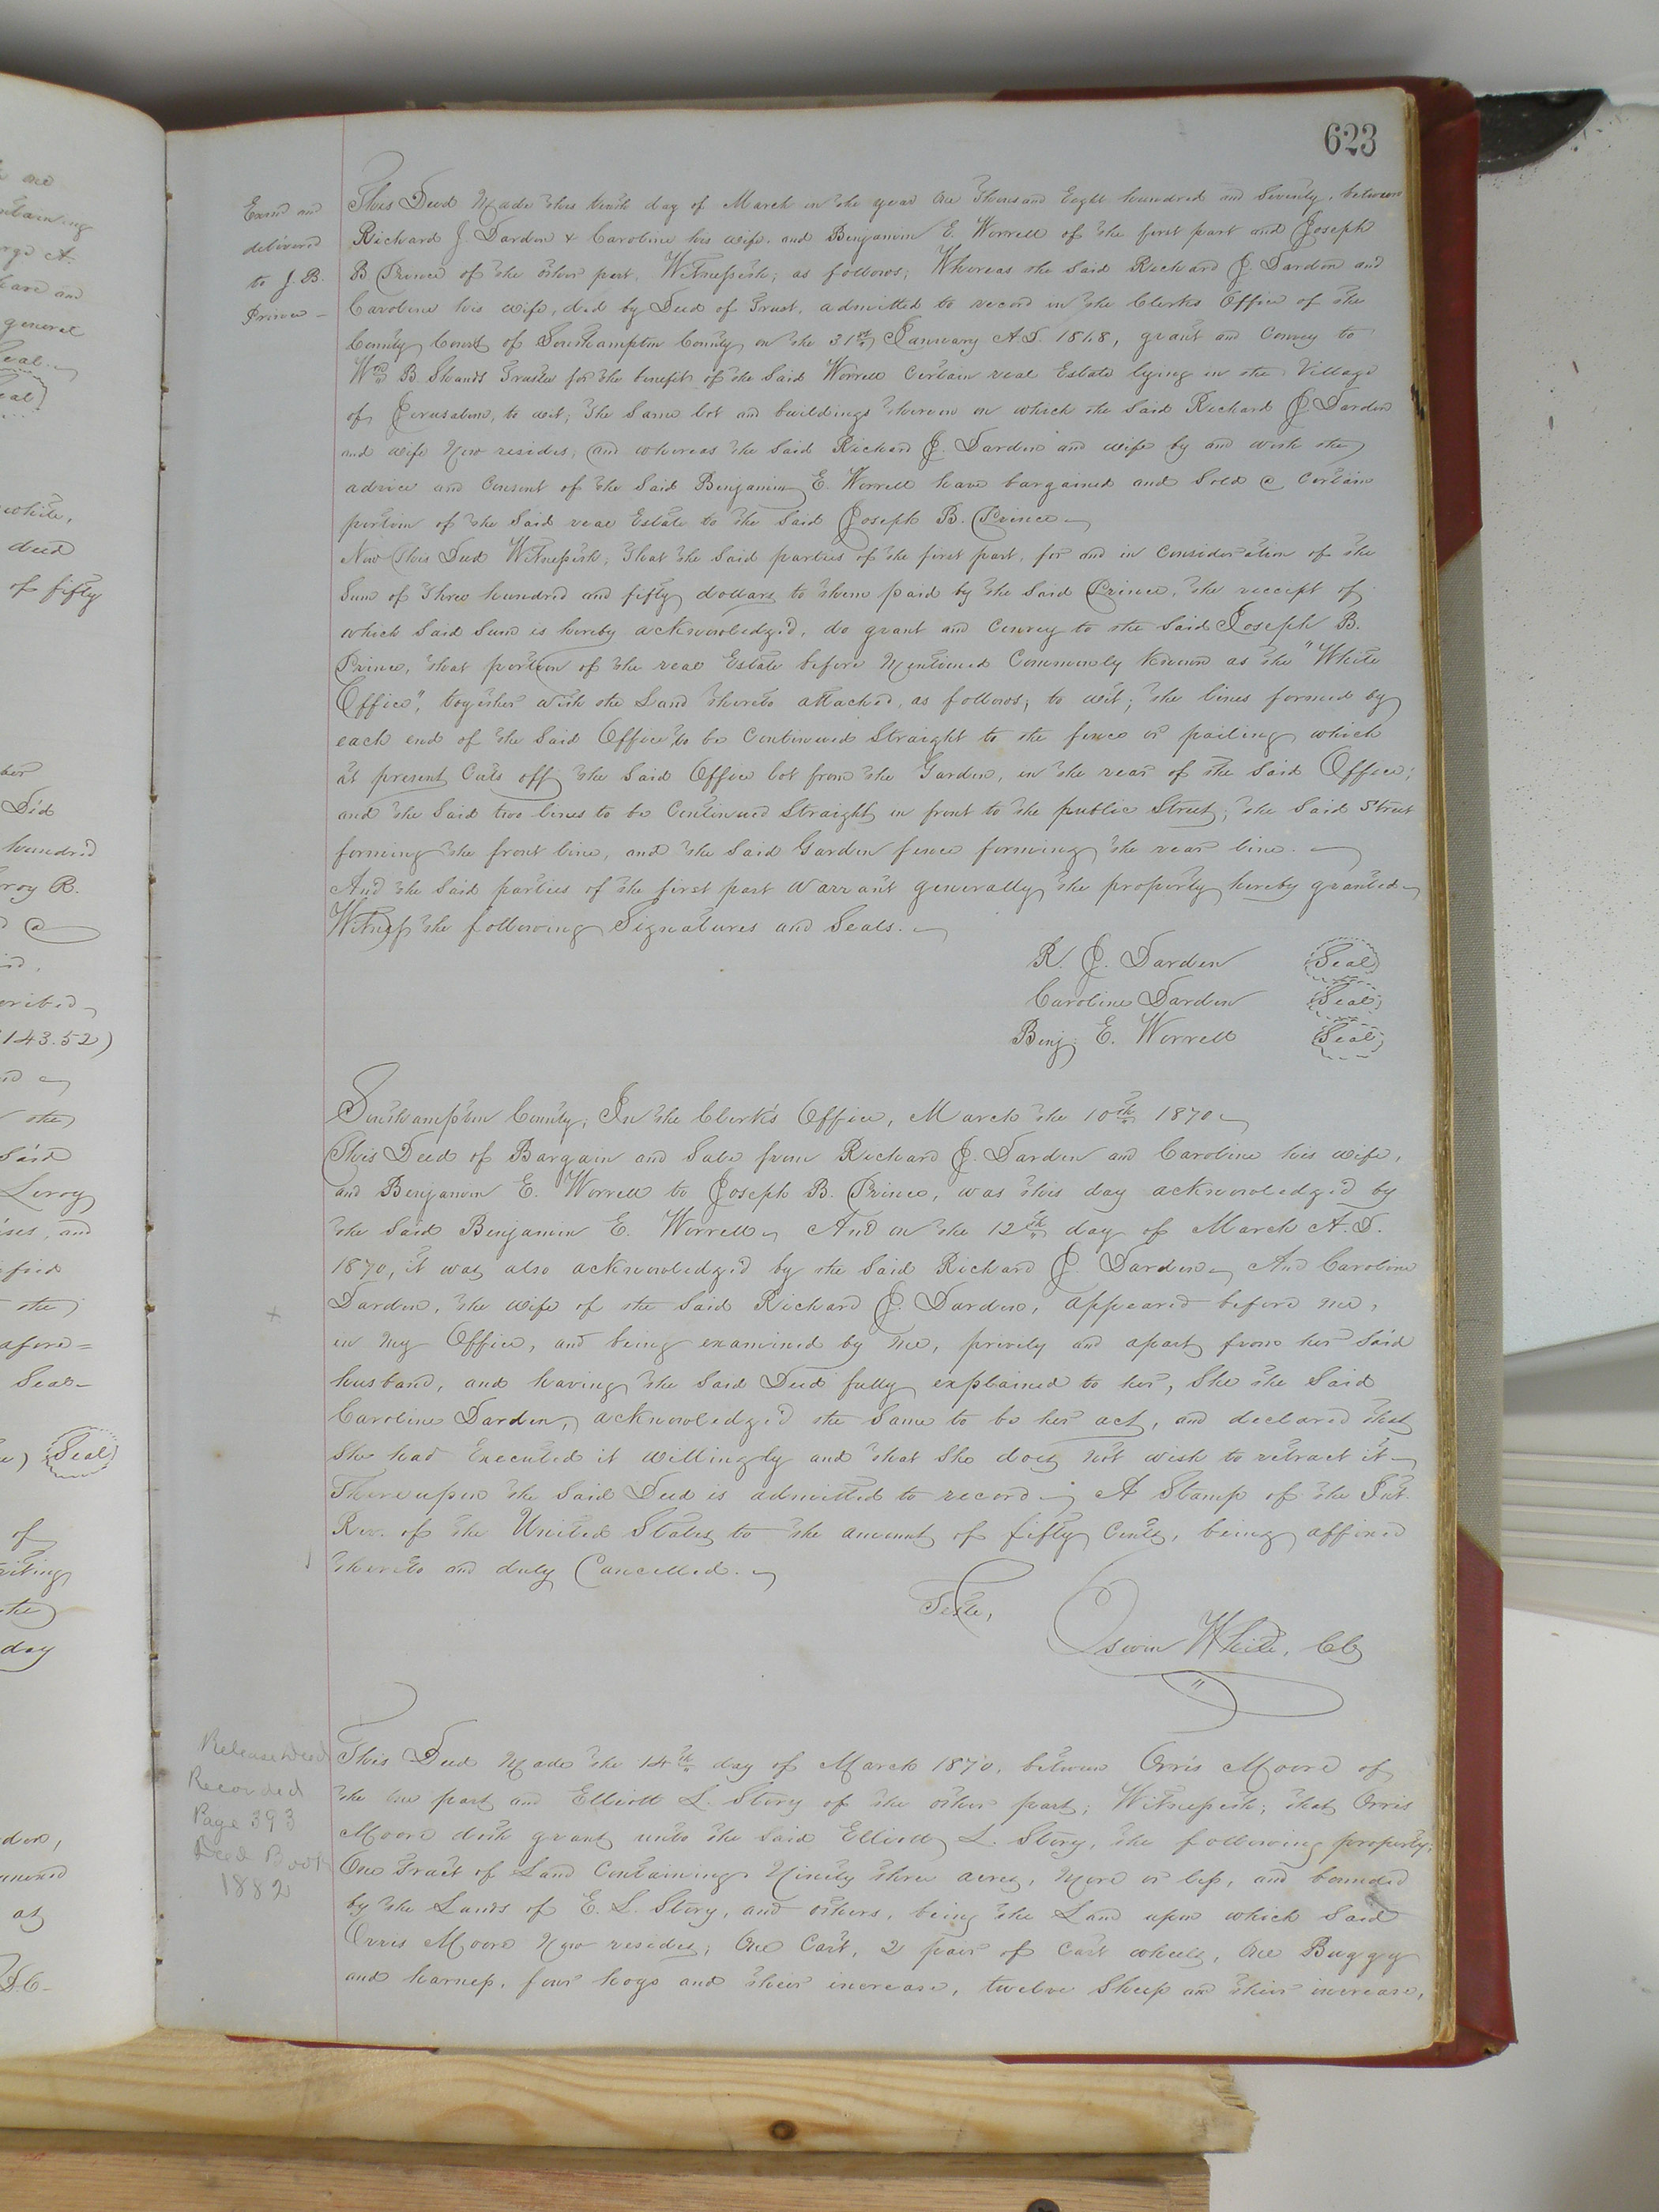 623
Exmd and
delivered
to J. B.
Prince
This Deed Made this tenth day of March in the year One Thousand Eight hundred and Seventy, between
Richard J. Darden & Caroline his wife, and Benjamin E. Worrell of the first part and Joseph
B Prince of the other part, Witnesseth; as follows; Whereas the Said Richard J. Darden and
Caroline his wife, did by Deed of Trust, admitted to record in the Clerks Office of the
County Court of Southampton County on the 31st January A.D. 1868, grant and Convey to
Wm B Shands Trustee for the benefit of the Said Worrell Certain real Estate lying in the Village
of Jerusalem, to wit; The Same lot and buildings thereon on which the Said Richard J Darden
and wife Now resides; and whereas the Said Richard J. Darden and wife by and with the
advice and Consent of the Said Benjamin E. Worrell have bargained and Sold a Certain
portion of the Said real Estate to the Said Joseph B. Prince
Now This Deed Witnesseth, That the Said parties of the first part, for and in Consideration of the
Sum of Three hundred and fifty dollars to them paid by the Said Prince, the receipt of
which Said Sum is hereby acknowledged, do grant and Convey to the Said Joseph B.
Prince, that portion of the real Estate before Mentioned Commonly Known as the "White
Office", together with the Land thereto attached, as follows; to wit; the lines formed by
each end of the Said Office, to be Continued Straight to the fence or pailing which
at present Cuts off the Said Office lot from the Garden, in the rear of the Said Office;
and the Said two lines to be Continued Straight in front to the public Street; the Said Street
forming the front line, and the Said Garden fence forming the rear line.
And the Said parties of the first part Warrant generally the property hereby granted
Witness the following Signatures and Seals.
R. J. Darden Seal
Caroline Darden Seal
Benj. E. Worrell Seal
Southampton County; In the Clerk's Office, March the 10th 1870
This Deed of Bargain and Sale from Richard J. Darden and Caroline his wife,
and Benjamin E. Worrell to Joseph B. Prince, was this day acknowledged by
the Said Benjamin E. Worrell, And on the 12th day of March A.D.
1870, it was also acknowledged by the Said Richard J. Darden, And Caroline
Darden, the wife of the Said Richard J. Darden, appeared before me,
in my Office, and being examined by me, privily and apart from her Said
husband, and having the Said Deed fully explained to her, She the Said
Caroline Darden, acknowledged the Same to be her act, and declared that
She had Executed it willingly and that She does not wish to retract it
Thereupon the Said Deed is admitted to record; A Stamp of the Int.
Rev. of the United States to the amount of fifty Cents, being affixed
thereto and duly Cancelled.
Teste,
Edwin White, Clk
Release Deed
Recorded
Page 393
Deed Book
1882
This Deed Made the 14th day of March 1870, between Orris Moore of
the one part and Elliott L. Story of the other part; Witnesseth; that Orris
Moore doth grant unto the Said Elliott L. Story, the following property;
One Tract of Land Containing Ninety three acres, More or less, and bounded
by the Lands of E. L. Story, and others, being the Land upon which Said
Orris Moore Now resides; One Cart, 2 pair of Cart wheels, One Buggy
and harness, four hogs and their increase, twelve Sheep and their increase,